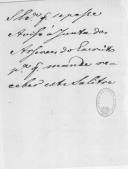 q se passe
Aviso á Junta do
Arsenal do Exercito
pª q mande re-
ceber este Salitre